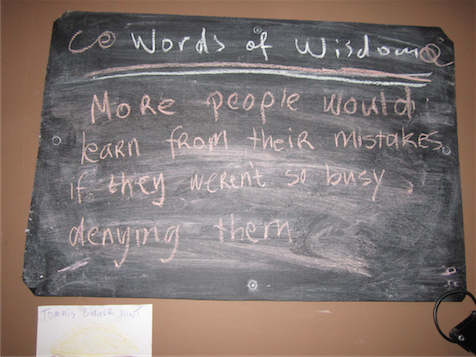 Words of Wisdom
More people would
learn from their mistakes
if they weren't so busy
denying them